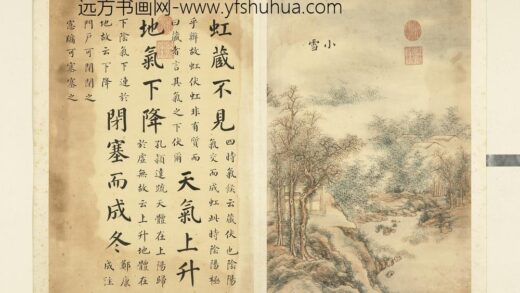 远方书画网-www.yfshuhua.com
小雪
虹藏不見
四時氣候云藏伏也陰陽
氣交而成虹此時陰陽極
乎辨故虹伏虹非有質而
曰藏者言其氣之下伏爾
天氣上升
地氣下降
孔穎達疏天體在上陽歸
於虛無故云上升地體在
下陰氣下連於
地故云下降
閉塞而成冬
鄭康
成注
門戶可閉閉之
窓牖可塞塞之